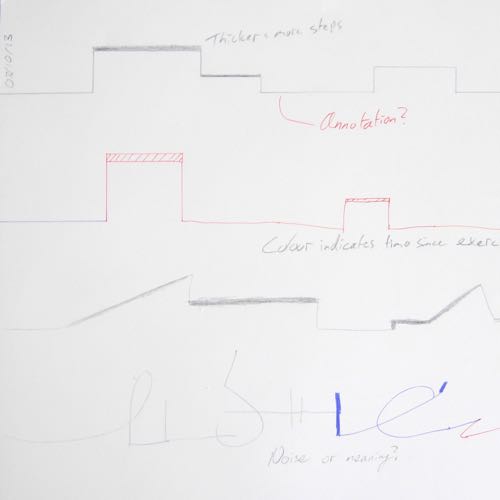 08/10/13
Thicker = more steps
Annotation?
Colour indicates time since exerc
Noise or meaning?